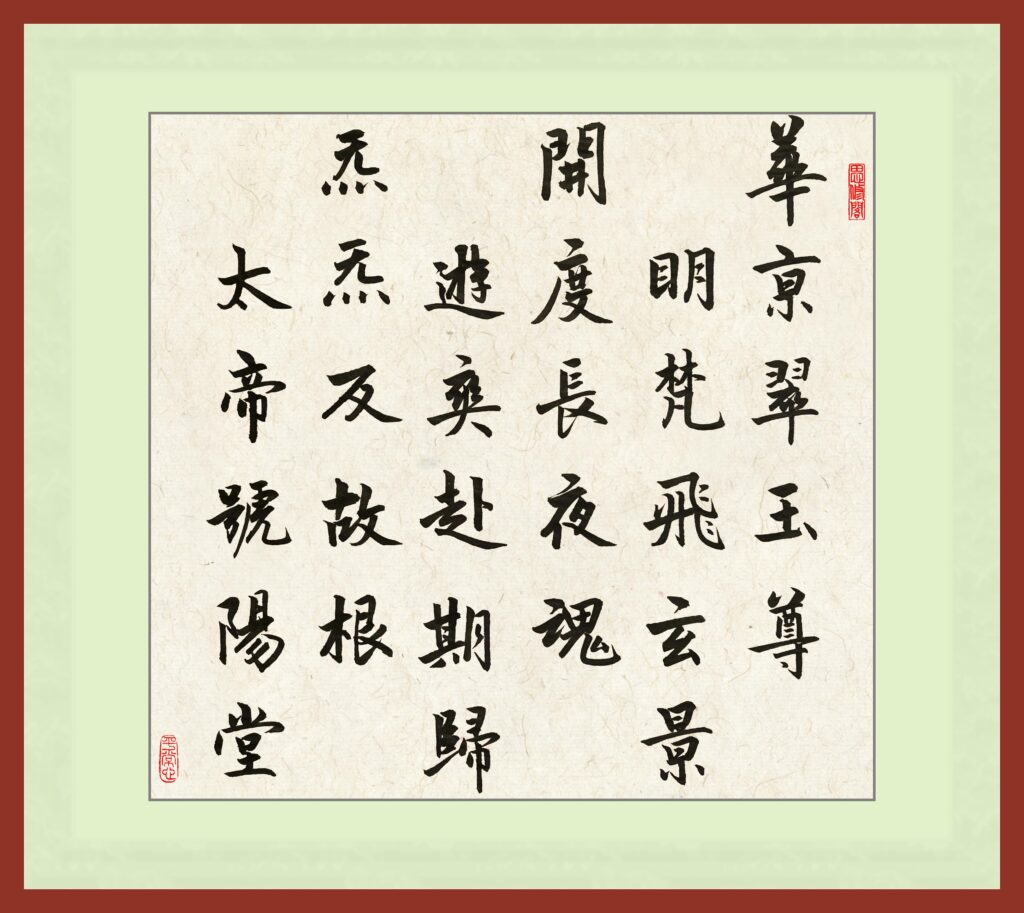 思修閣
華京翠玉尊
明梵飛玄景
開度長夜魂
遊爽赴期歸
炁炁反故根
太帝號陽堂
平常心